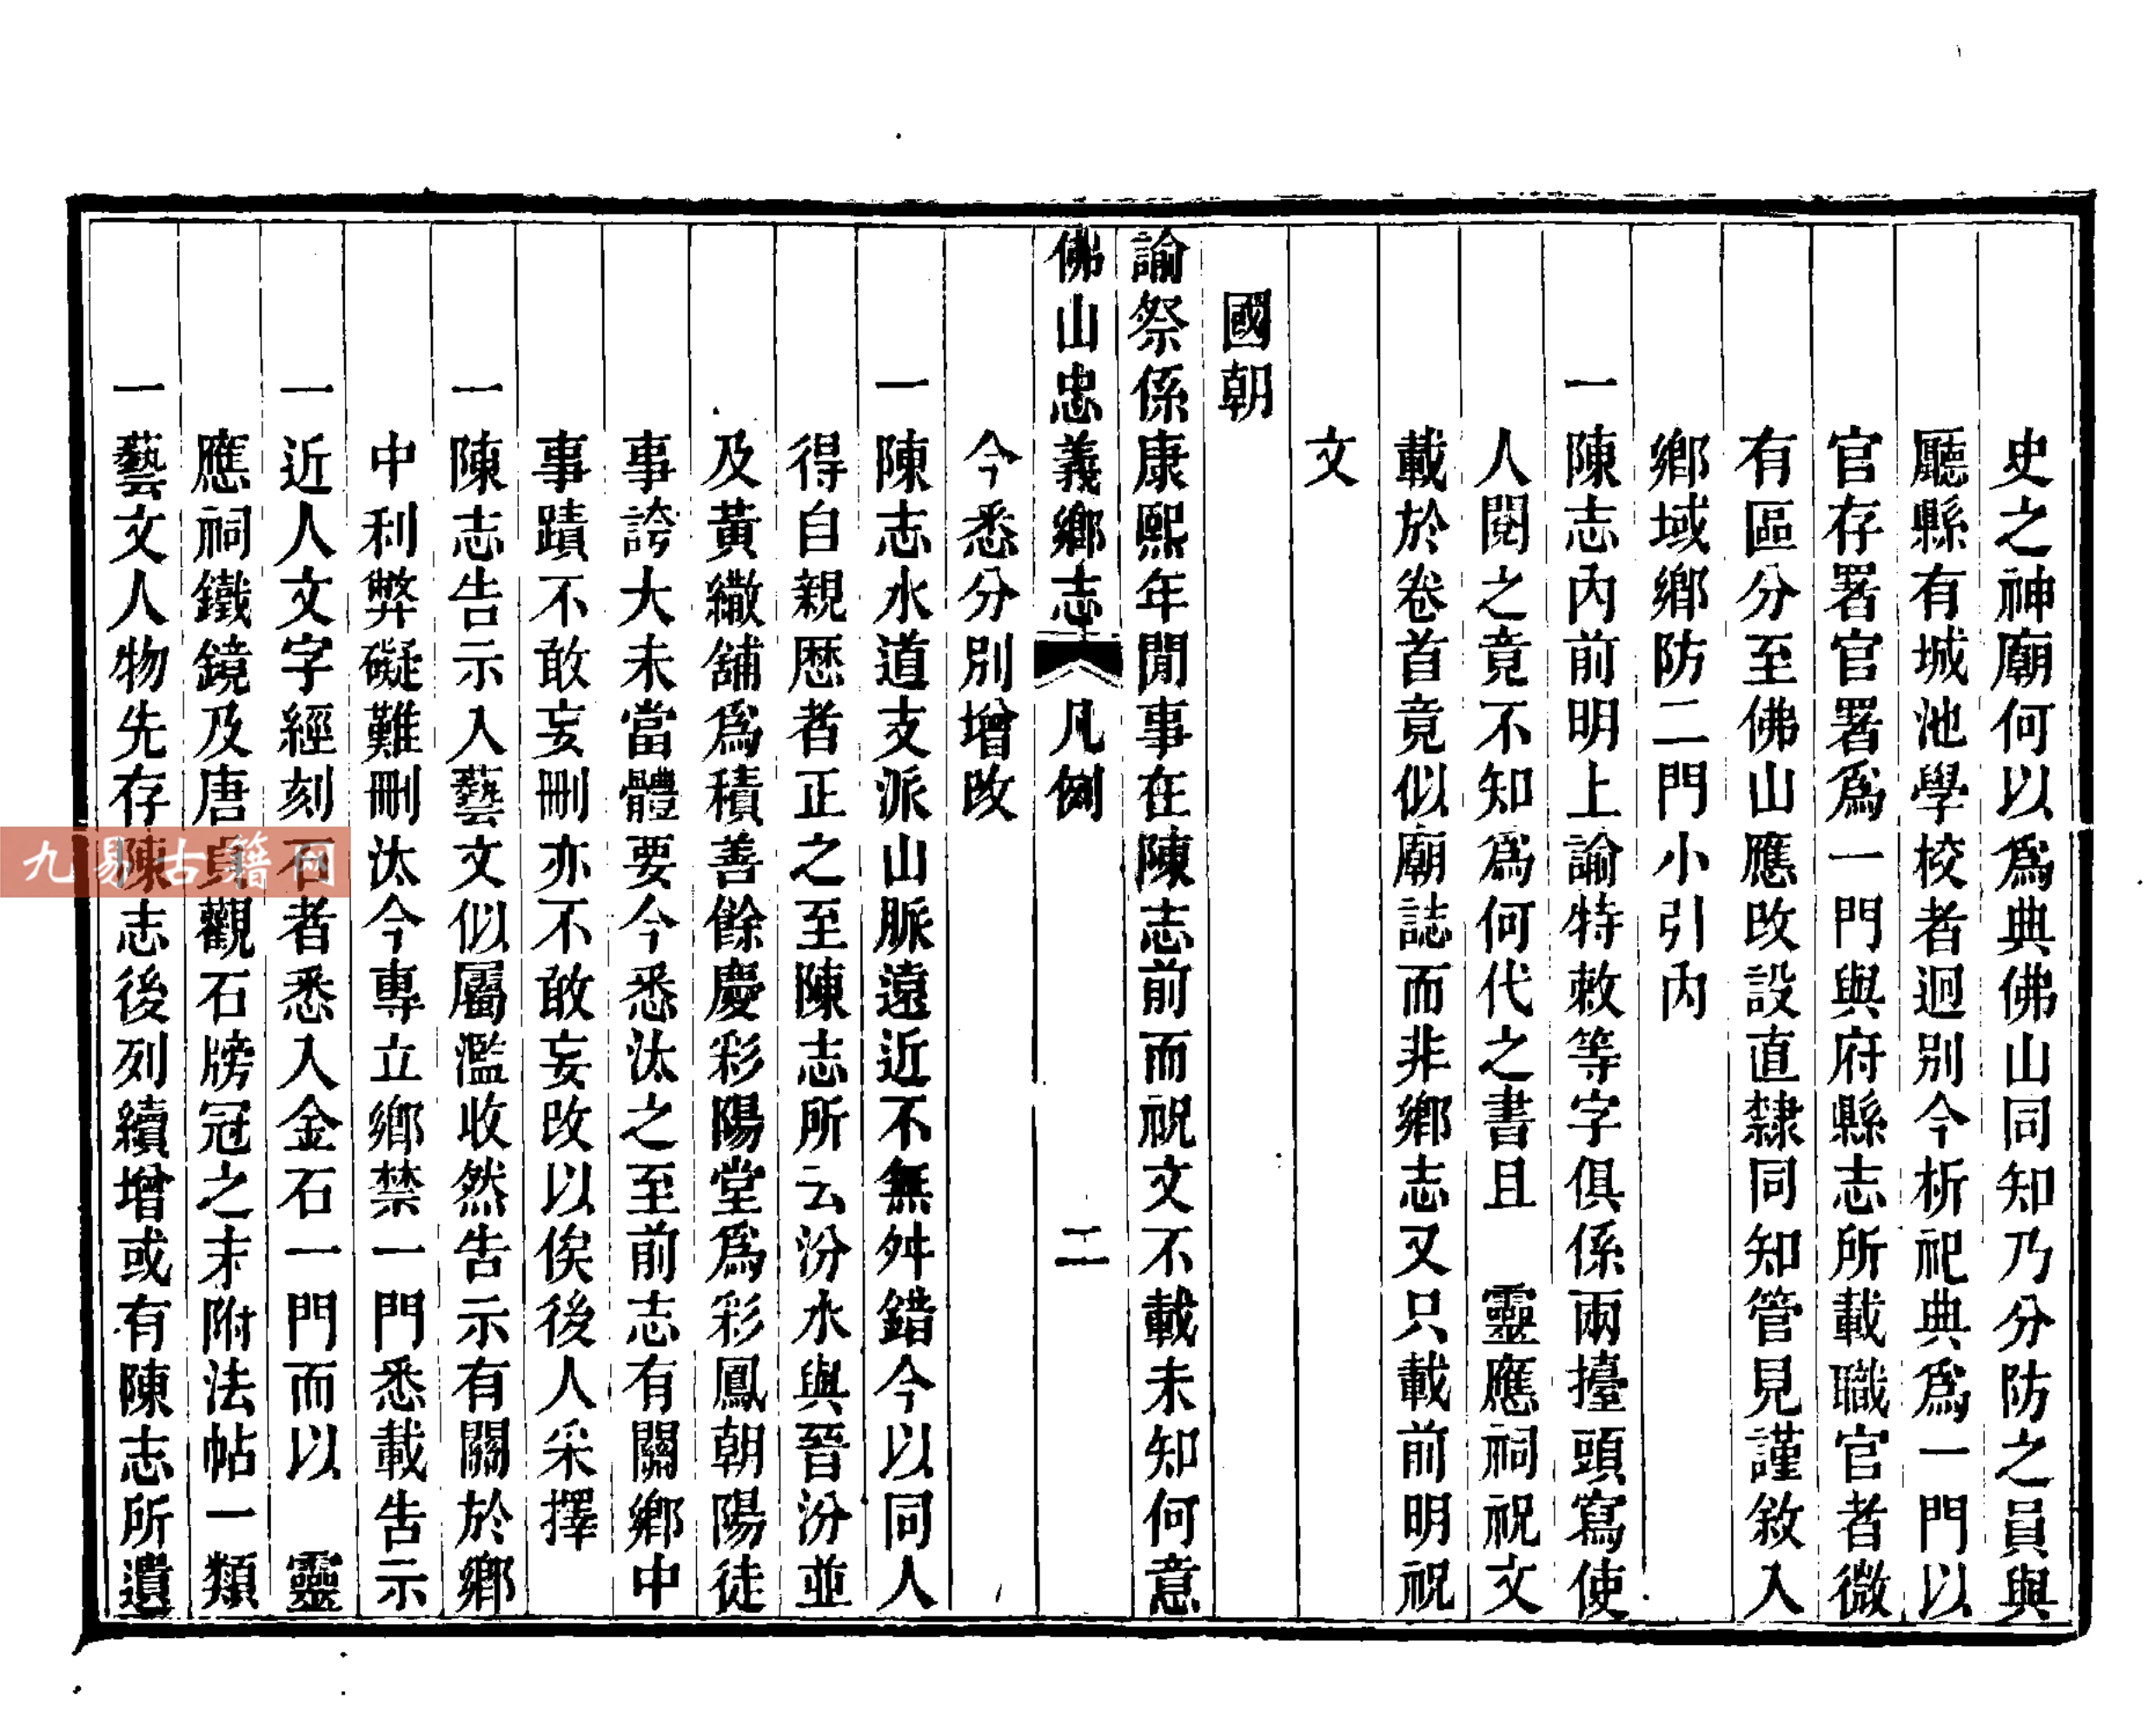 史之神廟何以爲典佛山同知乃分防之員與
廳縣有城池學校者迥别今析祀典爲一門以
官存署官署爲一門與府縣志所載職官者微
有區分至佛山應改設直隸同知管見謹敘入
鄉域鄉防二門小引內
一陳志內前明上諭特敕等字俱係兩擡頭寫使
人閱之竟不知爲何代之書且　靈應祠祝文
載於卷首竟似廟誌而非鄉志又只載前明祝
文
國朝
諭祭係康熙年閒事在陳志前而祝文不載未知何意
佛山忠義鄉志　凡例　二
今悉分別增改
一陳志水道支派山脈遠近不無舛錯今以同人
得自親歷者正之至陳志所云汾水與晉汾並
及黃繖舖爲積善餘慶彩陽堂爲彩鳳朝陽徒
事誇大未當體要今悉汰之至前志有關鄉中
事蹟不敢妄刪亦不敢妄改以俟後人采擇
一陳志告示入藝文似屬濫收然告示有關於鄉
中利弊礙難刪汰今專立鄉禁一門悉載告示
一近人文字經刻石者悉入金石一門而以　靈
應祠鐵鏡及唐貞觀石牓冠之末附法帖一類
一藝文人物先存陳志後列續增或有陳志所遺
九易古籍网